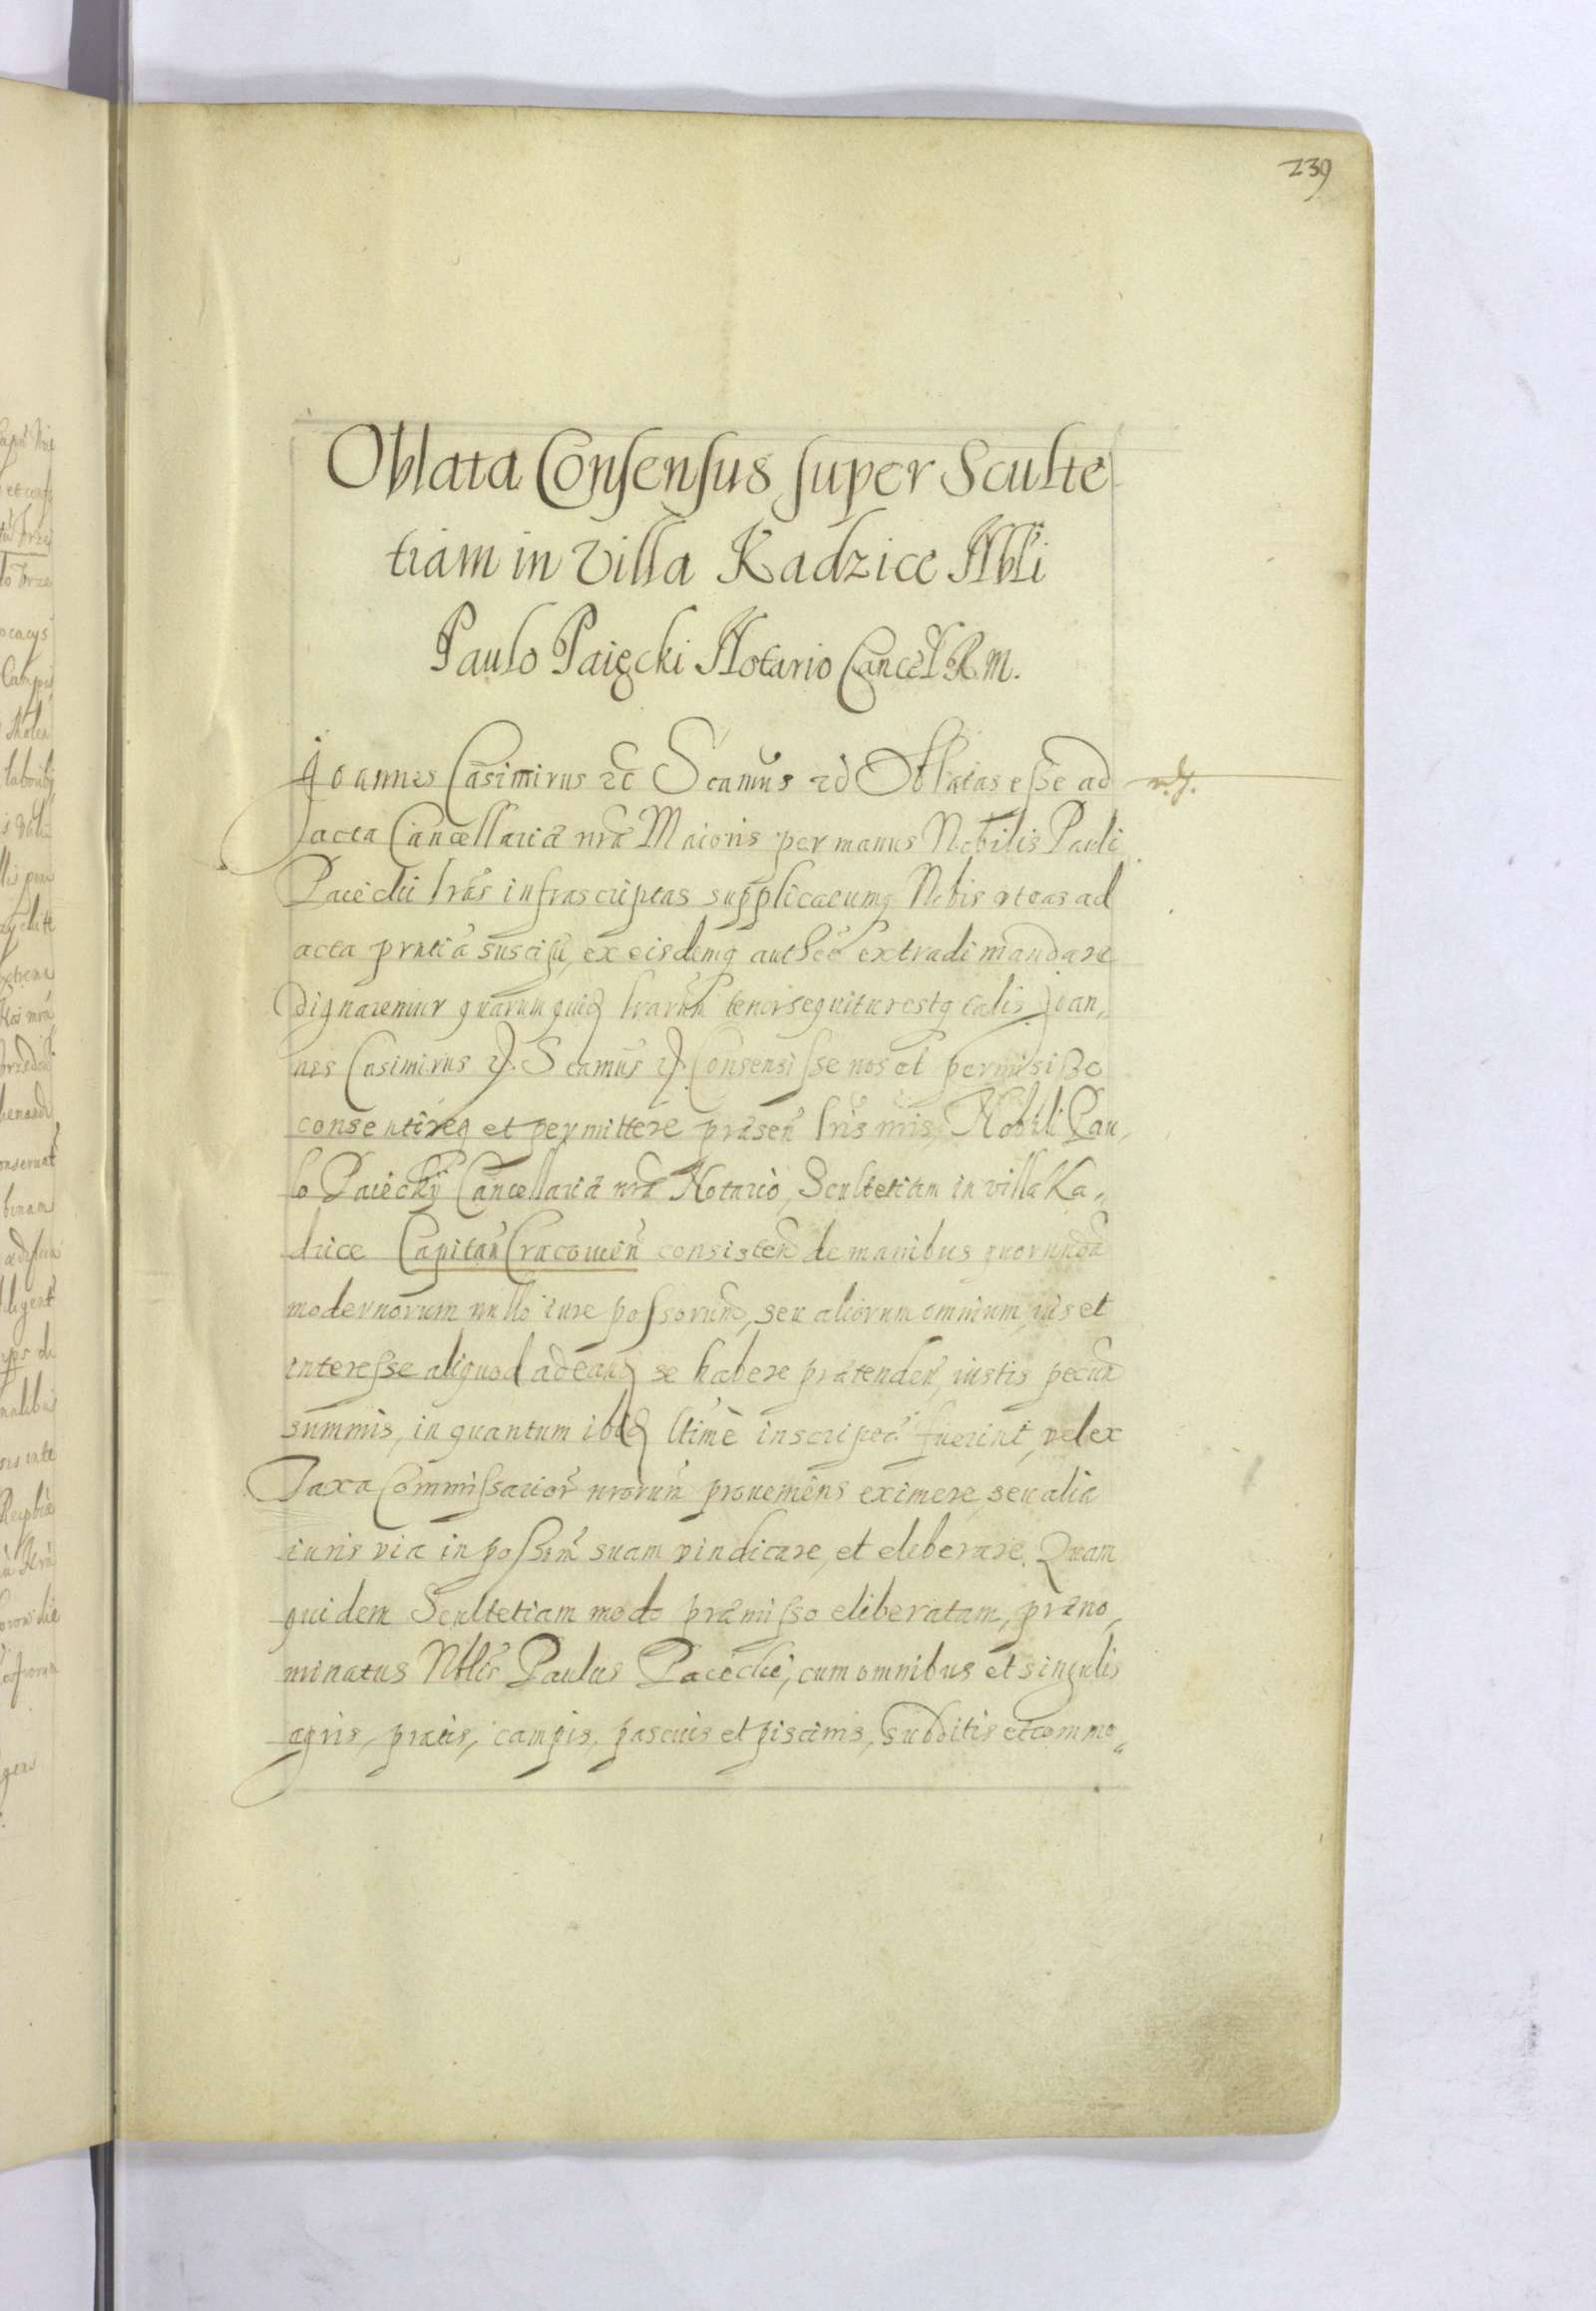 239
Oblata Consensus super Sculte
tiam in Villa Kadzice Nbli
Paulo Paięcki Notario Cancel R. M.
Joannes Casimirus etc Scamus etc Oblatas esse ad
acta Cancellariæ nræ Maioris per manus Nobilis Pauli
Paięcki lrās infrascriptas supplicatumq Nobis ut eas ad
acta suscipi, ex eisdemq authēe extradi mandare
dignaremur quarum quid lrarum tenor sequitur estq talis Joan„
nes Casimirus etc Scamus etc Consensisse nos et permisisse
consentireq et permittere præsen lris nris, Nobili Pau„
lo Paięcky Cancellariæ nræ Notario, Scultetiam in villa Ka„
dzice Capitan Cracouien consisten de manibus quorunda
modernorum nullo iure possorum, seu aliorum omnium, ius et
interesse aliquod ad eand se habere prætenden, iustis pecun
summis, in quantum ibid ltimè inscriptæ fuerint, vel ex
Taxa Commissarior nrorum proueniens eximere, seu alia
iuris via in possem suam vindicare, et eliberare. Quam
quidem Scultetiam modo præmisso eliberatam, præno„
minatus Nblis Paulus Paięcki, cum omnibus et singulis
agris, pratis, campis, pascuis et piscinis, subditis et commo„